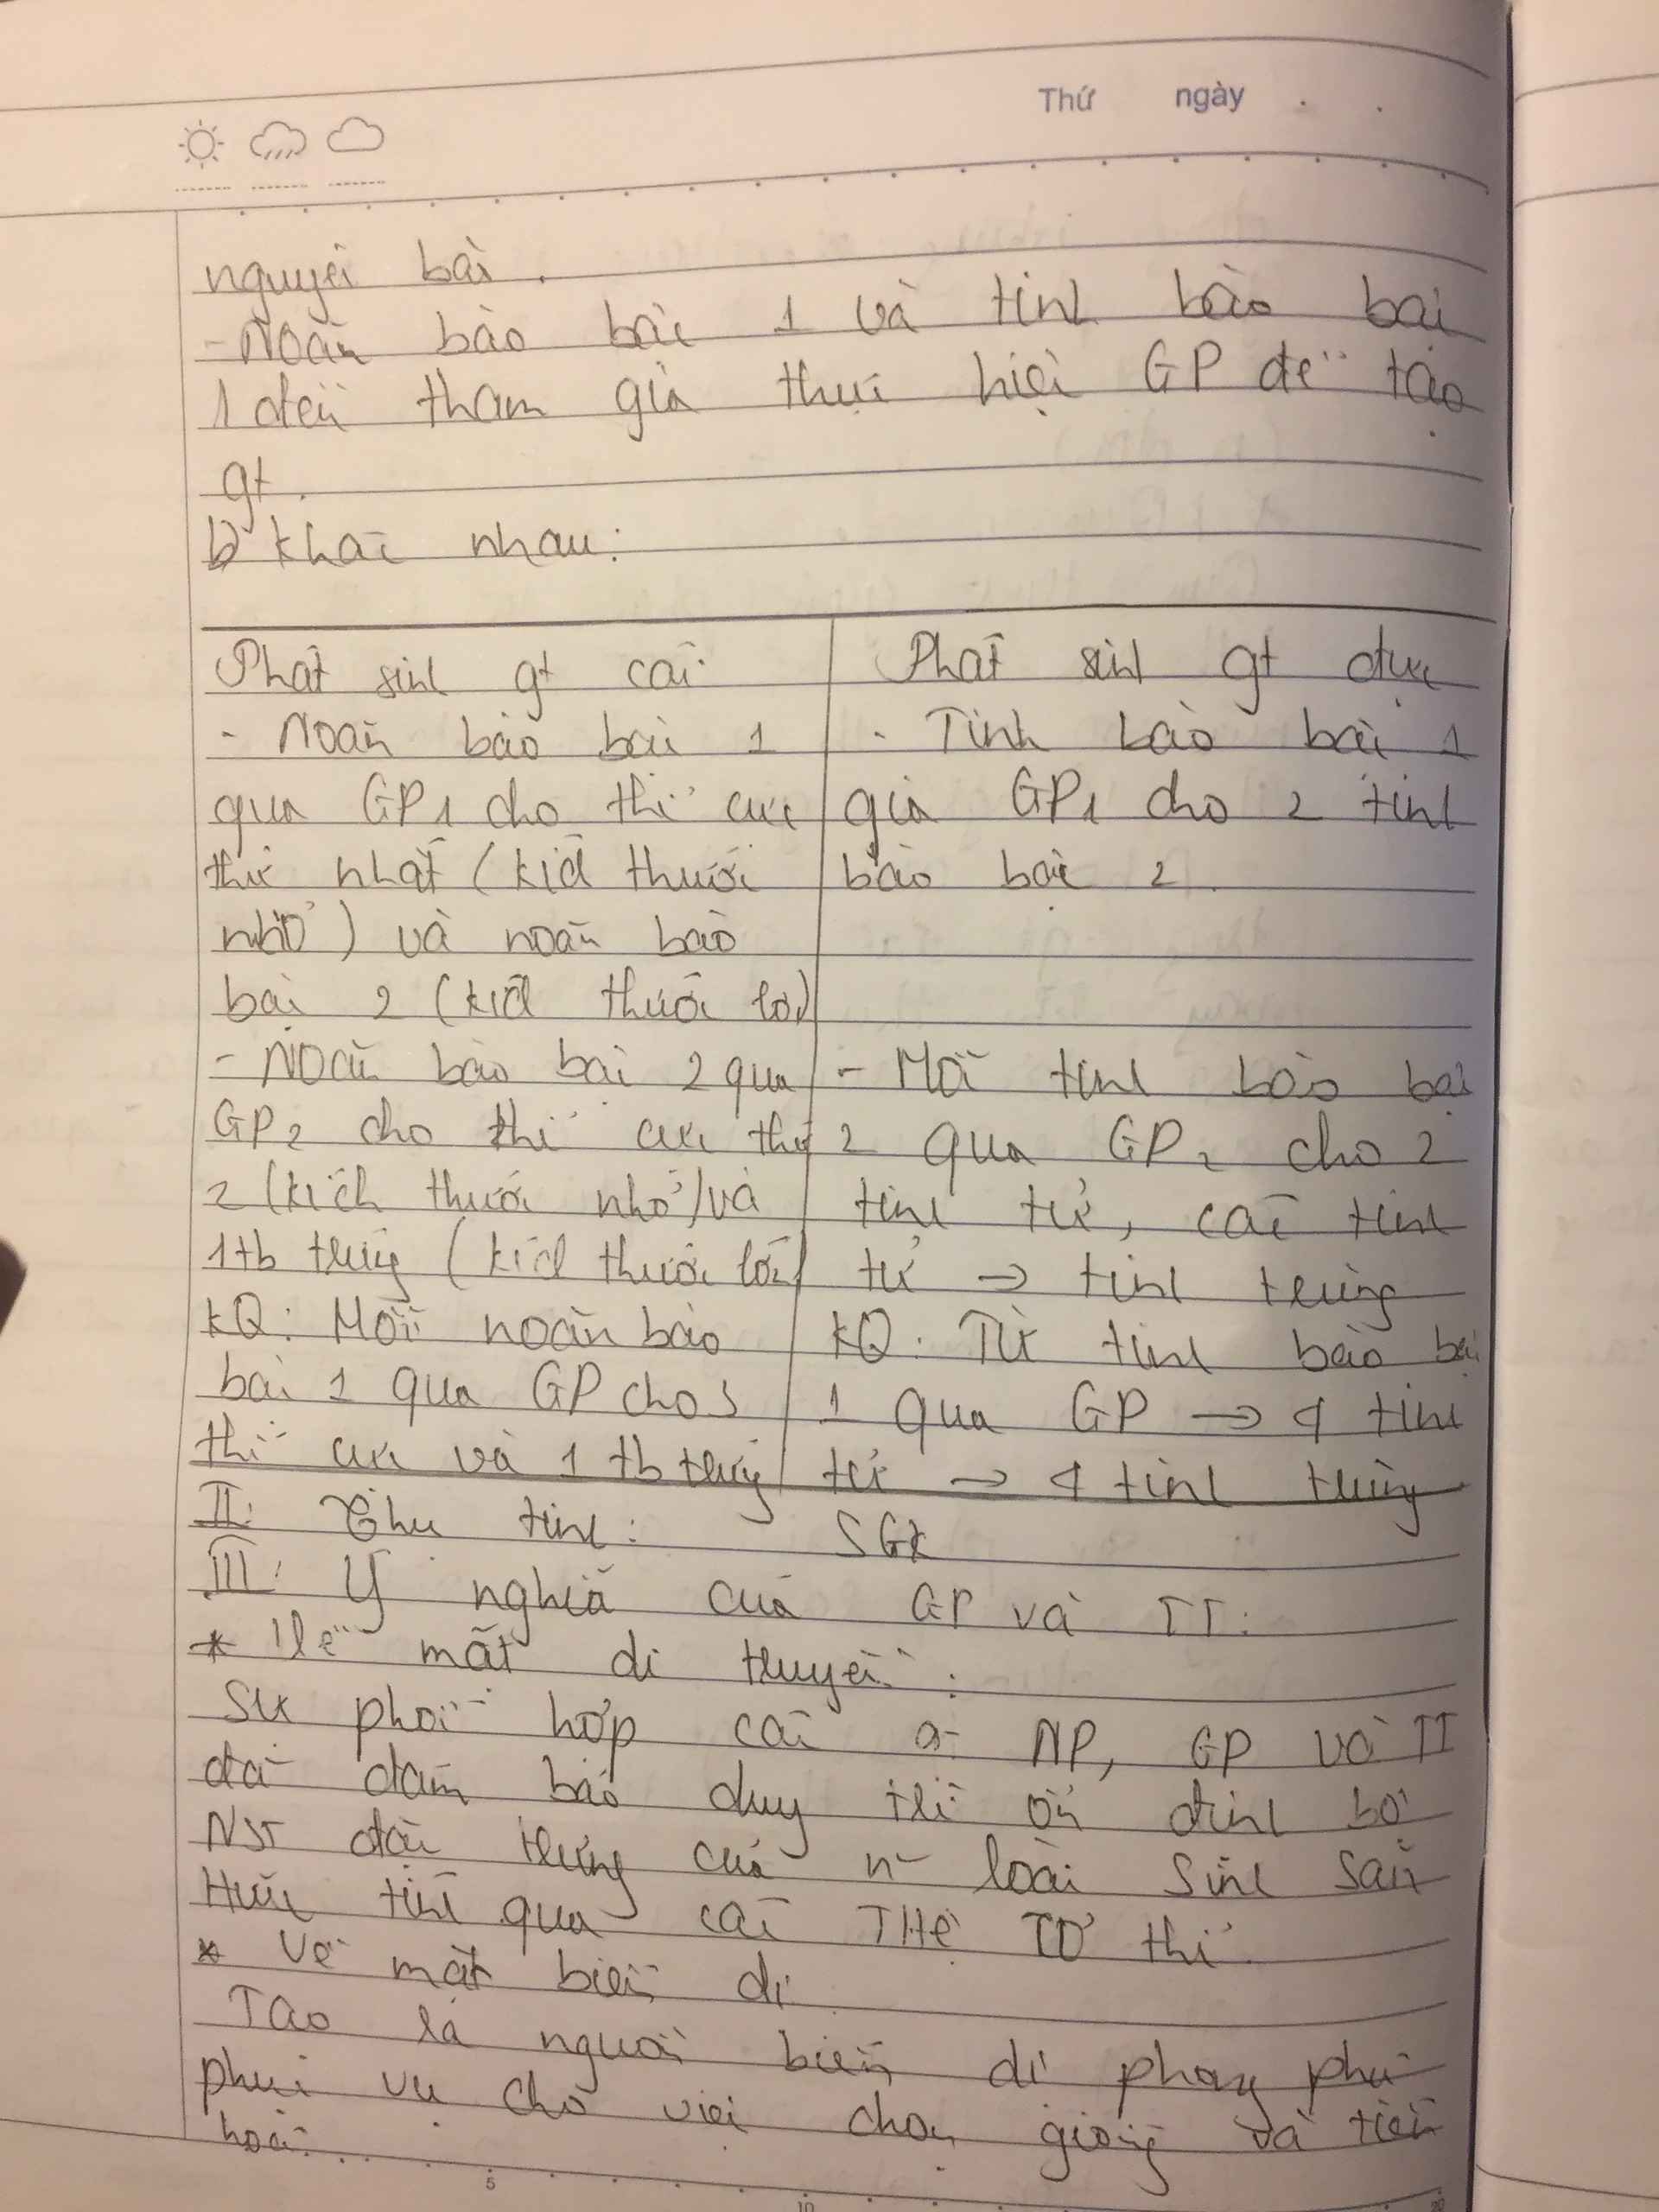 Thứ ngày
nguyên bài.
- Noãn bào bậc 1 và tinh bào bậc
1 đều tham gia thực hiện GP để tạo
gt.
b khác nhau:
Phát sinh gt cái
- Noãn bào bậc 1
qua GP1 cho thể cực
thứ nhất (kích thước
nhỏ) và noãn bào
bậc 2 (kích thước lớn)
- Noãn bào bậc 2 qua
GP2 cho thể cực thứ
2 (kích thước nhỏ) và
1 tb trứng (kích thước lớn)
KQ: Mỗi noãn bào
bậc 1 qua GP cho 3
thể cực và 1 tb trứng
Phát sinh gt đực
- Tinh bào bậc 1
qua GP1 cho 2 tinh
bào bậc 2.
- Mỗi tinh bào bậc
2 qua GP2 cho 2
tinh tử, các tinh
tử → tinh trùng
KQ: Từ tinh bào bậc
1 qua GP → 4 tinh
tử → 4 tinh trùng
II: Thụ tinh: SGK
III: Ý nghĩa của GP và TT:
* Về mặt di truyền:
Sự phối hợp các q- NP, GP và TT
đã đảm bảo duy trì ổn định bộ
NST đặc trưng của n- loài sinh sản
Hữu tính qua các THệ Cơ thể
* Về mặt biến dị
Tạo ra nguồn biến dị phong phú
phục vụ cho việc chọn giống và tiến
hoá.
5
10
20